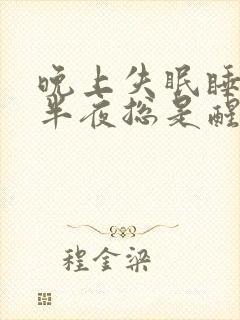 晚上失眠睡
半夜总是醒
程金梁